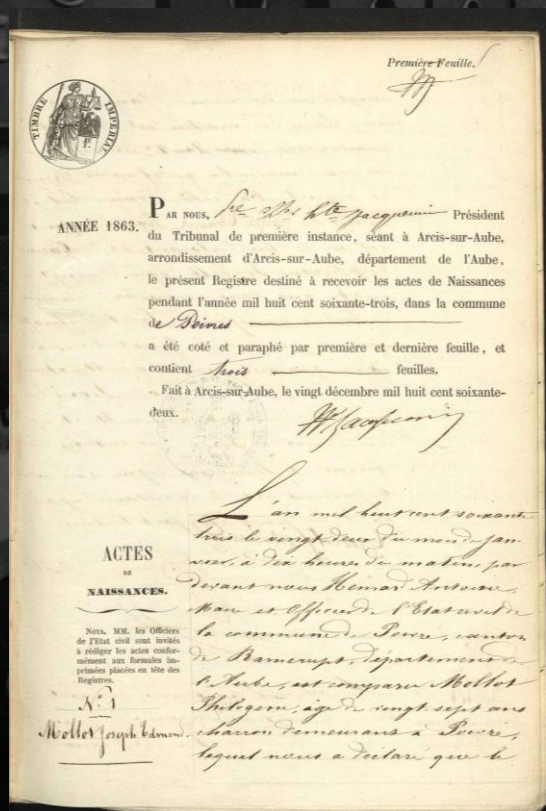 Première Feuille.
TIMBRE IMPÉRIAL
ANNÉE 1863.
PAR NOUS, Jacquemin Président
du Tribunal de première instance, séant à Arcis-sur-Aube,
arrondissement d'Arcis-sur-Aube, département de l'Aube,
le présent Registre destiné à recevoir les actes de Naissances
pendant l'année mil huit cent soixante-trois, dans la commune
de
a été coté et paraphé par première et dernière feuille, et
contient trois feuilles.
Fait à Arcis-sur-Aube, le vingt décembre mil huit cent soixante-
deux.
ACTES
DE
NAISSANCES.
NOTA. MM. les Officiers
de l'Etat civil sont invités
à rédiger les actes confor-
mément aux formules im-
primées placées en tête des
Registres.
N° 1
Mollot Joseph Edmond.
L'an mil huit cent soixante
trois le vingt deux du mois de jan-
vier, à dix heures du matin, par
devant nous Antoine,
Maire et Officier de l'Etat civil de
la commune de Poivre, canton
de Ramerupt, département de
l'Aube, est comparu Mollot
Philogène, âgé de vingt sept ans
charron demeurant à Poivre,
lequel nous a déclaré que le